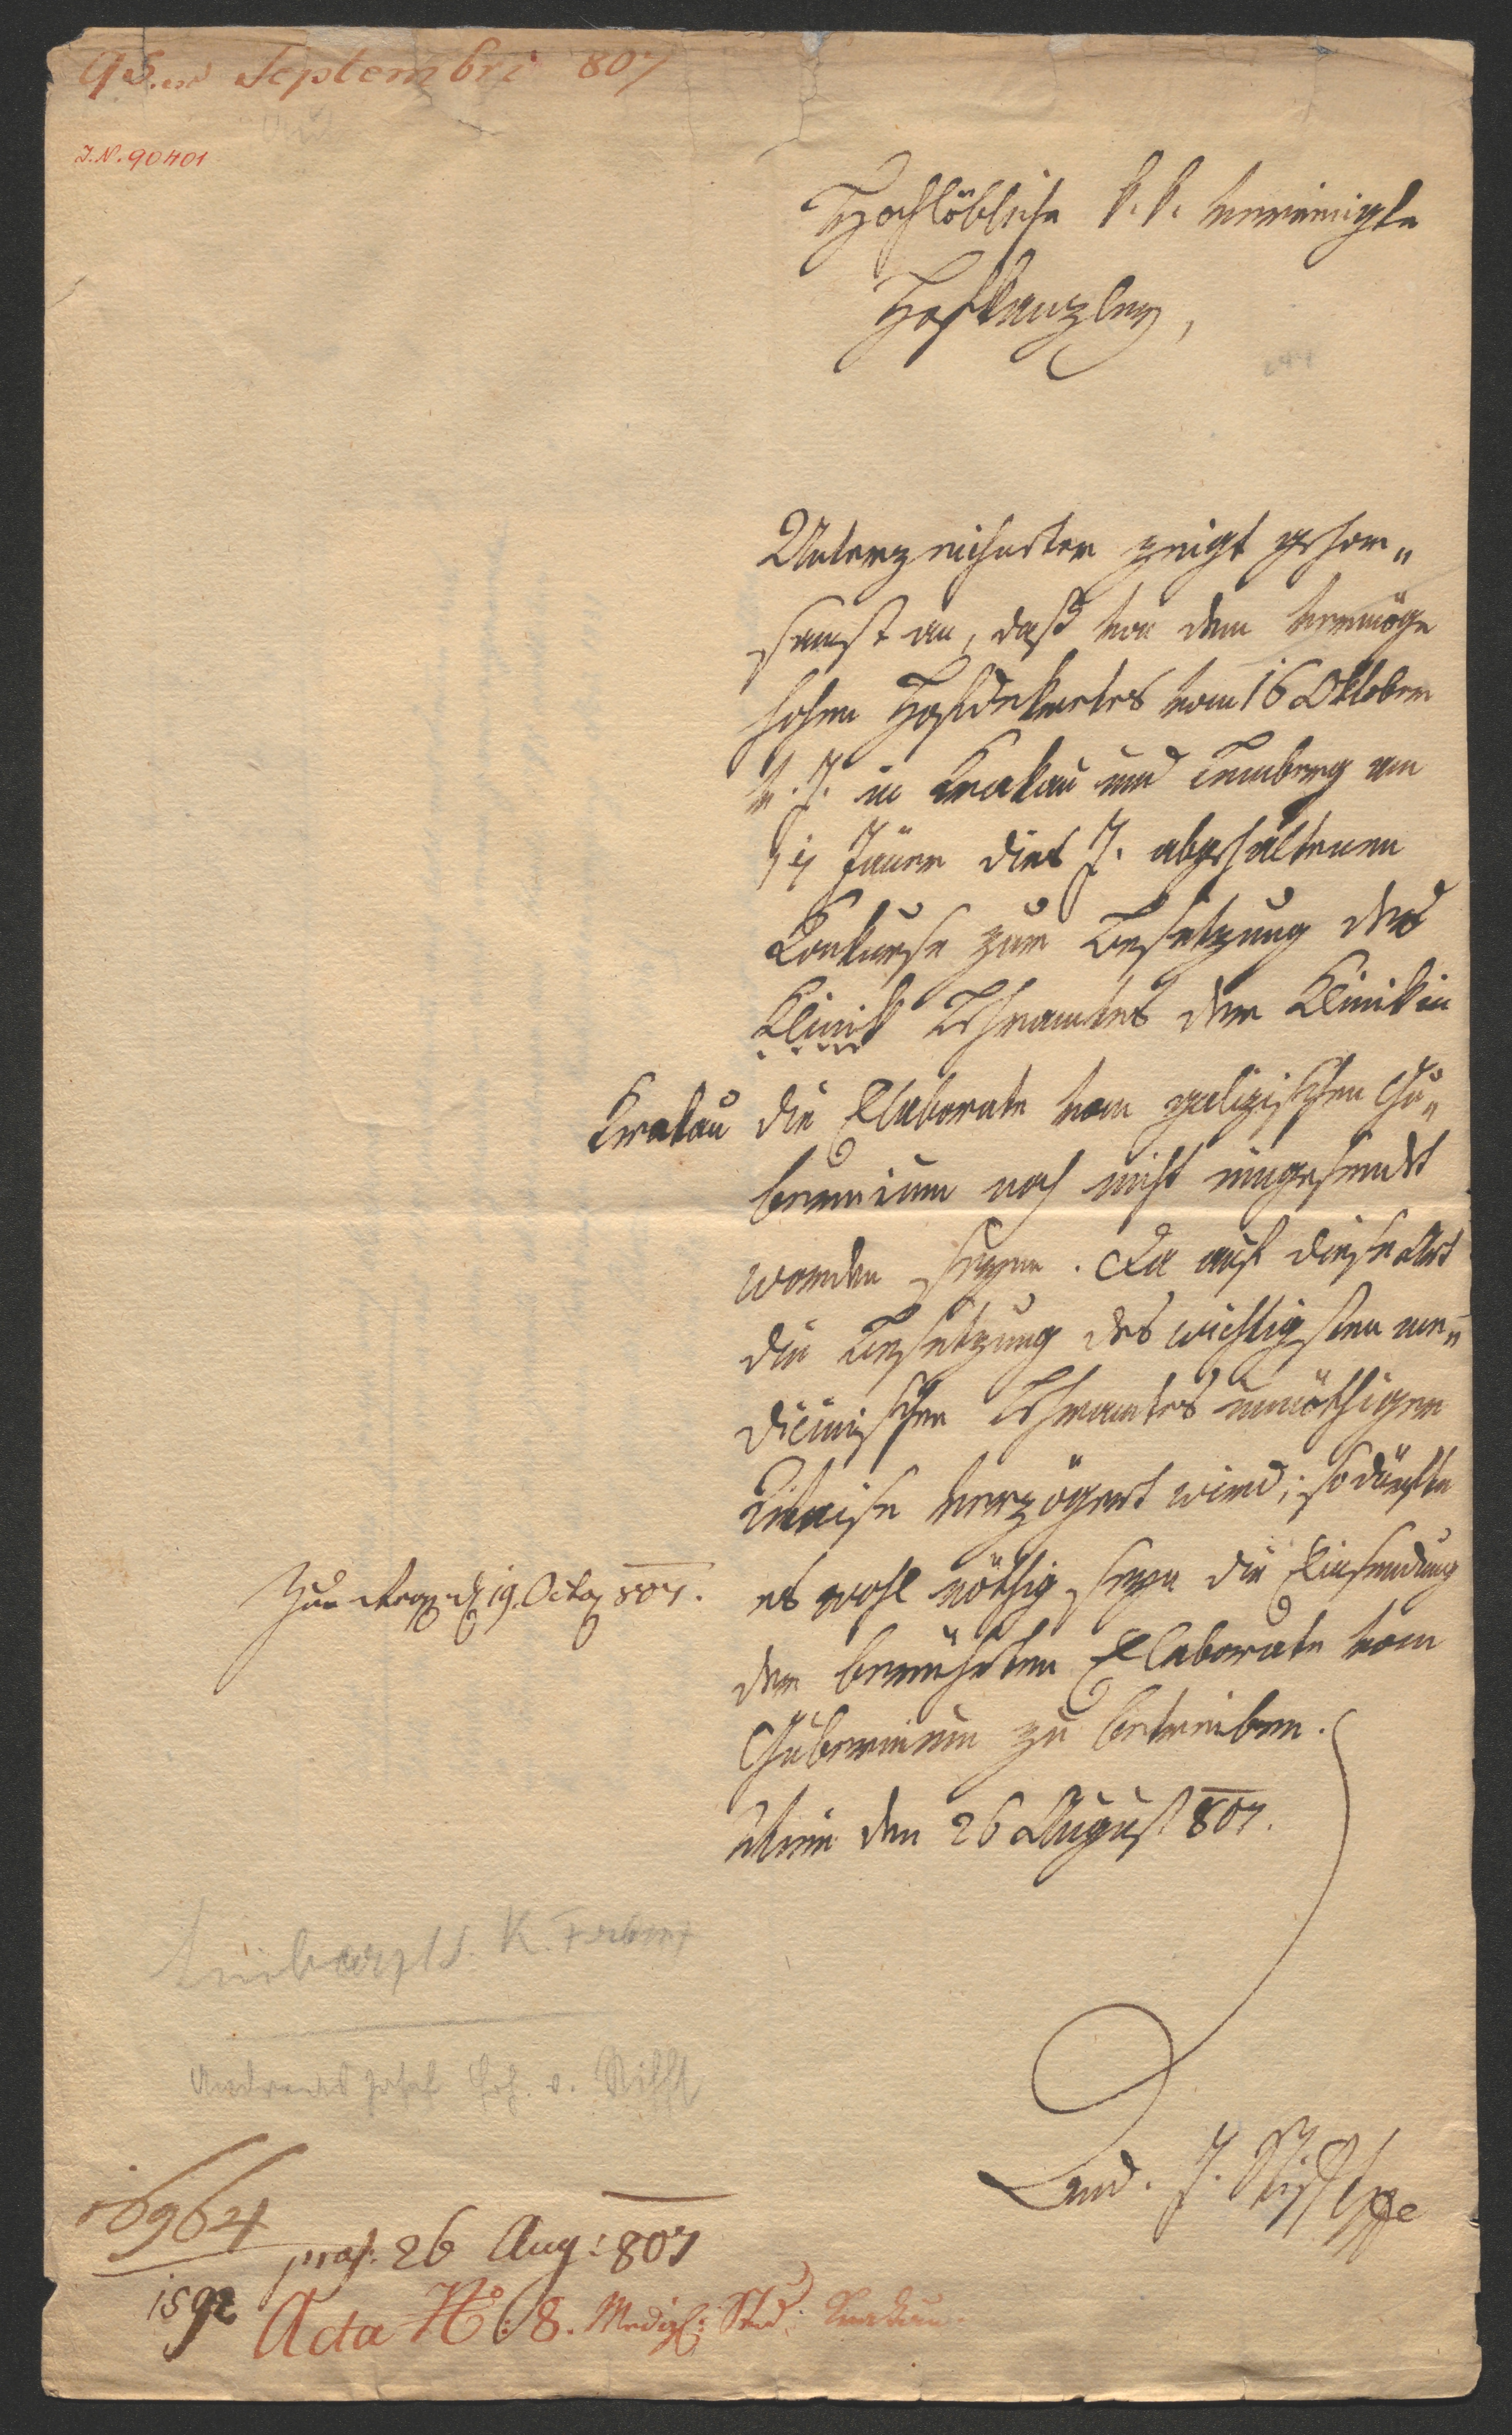 95. ex Septembri 807
I.N. 90401
Hochlöbliche k. k. vereinigte
Hofkanzley,
Unterzeichneter zeigt gehor„
samst an, daß von dem vermöge
hohen Hofdekretes vom 16 Oktober
v. J. in Krakau und Lemberg am
Jäner dies J. abgehaltenen
Konkurse zur Besetzung des
Klinik Lehramtes der Klinik in
Krakau die Elaborate vom galizischen Gu„
bernium noch nicht eingesendet
worden seyen. Da auf diese Art
die Besetzung des wichtigsten me„
dicinischen Lehramtes unnöthiger
Weise verzögert wird; so dürfte
es wohl nöthig seyn die Einsendung
der berührten Elaborate vom
Gubernium zu betreiben.
Wien den 26 August 807.
19. Octob 807.
Leibarzt d. K. Franz
Andreas Josef Frh. v. Stifft
And. J. Stifft
16964
praes: 26 Aug: 807
1592
Acta No: 8. Medizl: Stud: Krakau.